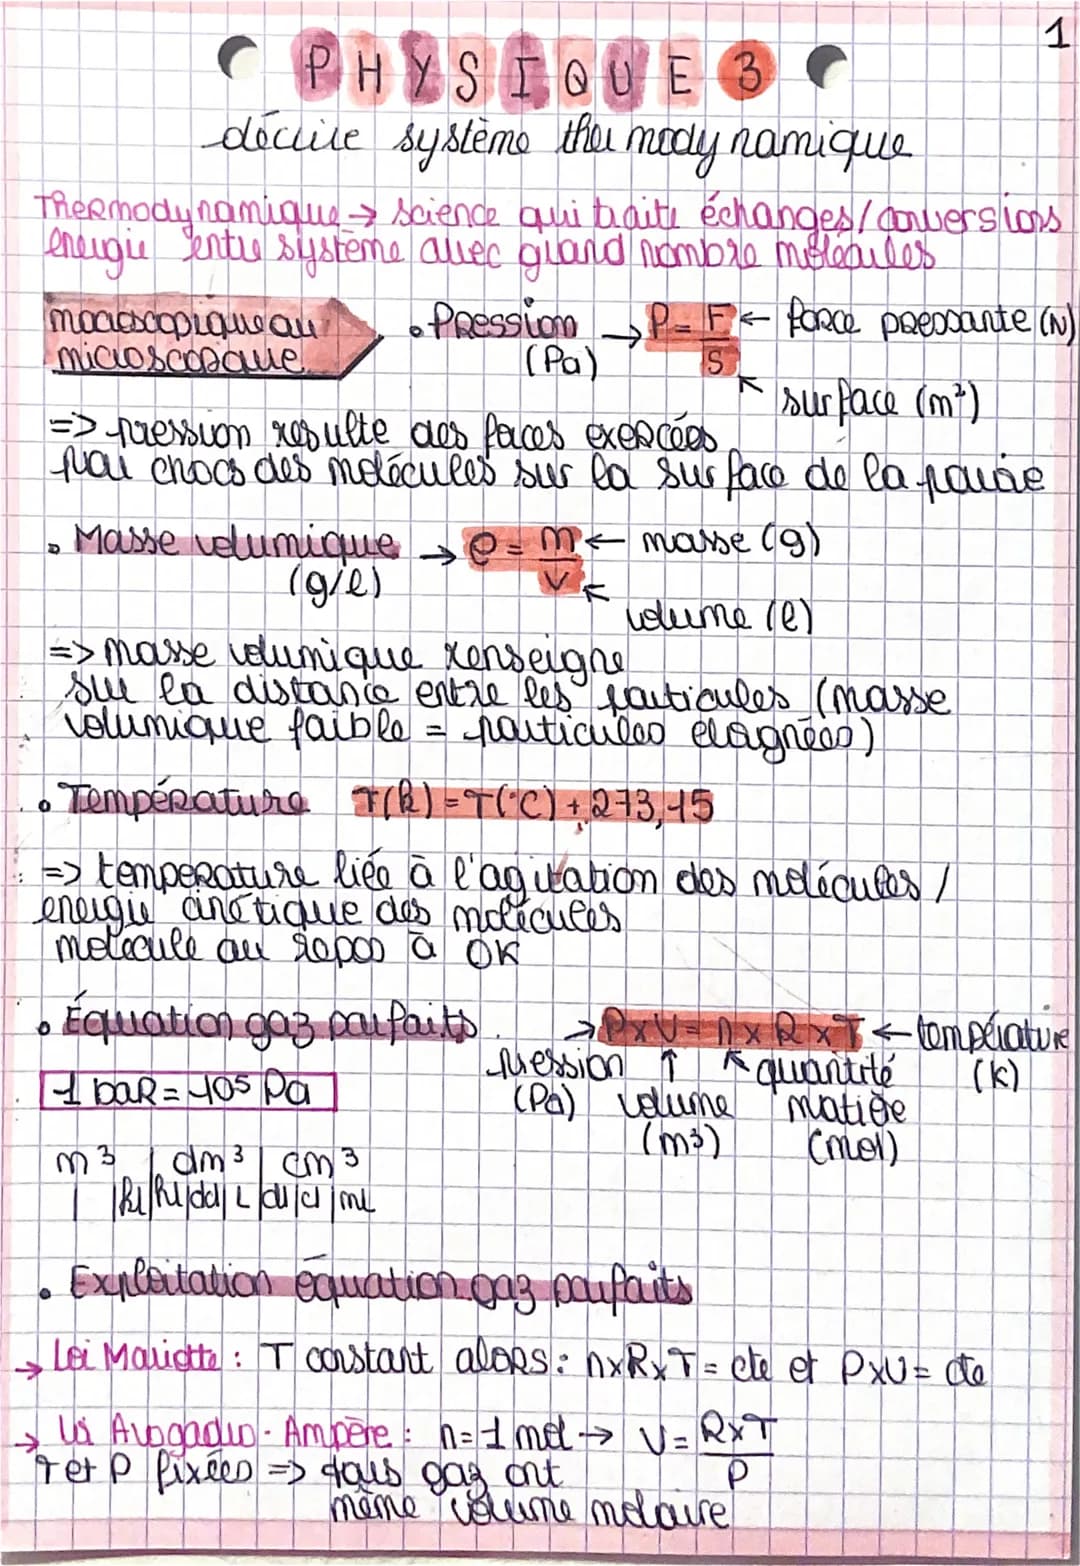 1
PHYSIQUE 3
décrire système thermodynamique
Thermodynamique → science qui traite échanges/conversions
énergie entre système avec grand nombre molécules
macroscopique au
microscopique
• Pression → P = F/S ← force pressante (N)
(Pa)
surface (m²)
=> pression resulte des forces exercées
par chocs des molécules sur la surface de la paroie
• Masse volumique → ρ = m/V ← masse (g)
(g/l)
volume (l)
=> masse volumique renseigne
sur la distance entre les particules (masse
volumique faible = particules élognées)
• Température T(k) = T(°C) + 273,15
=> temperature liée à l'agitation des molécules /
energie cinétique des molécules
molécule au repos à 0K
• Équation gaz parfaits → P x V = n x R x T ← température
pression ↑ quantité (K)
1 baR = 10⁵ Pa
(Pa) volume matière
(m³) (mol)
m³ | dm³ | cm³
| kl | hl | dal | L | dl | cl | ml
• Exploitation équation gaz parfaits
→ Loi Mariotte : T constant alors : n x R x T = cte et P x V = cte
→ Loi Avogadro - Ampère : n = 1 mol → V = R x T / P
T et P fixées => tous gaz ont
même volume molaire